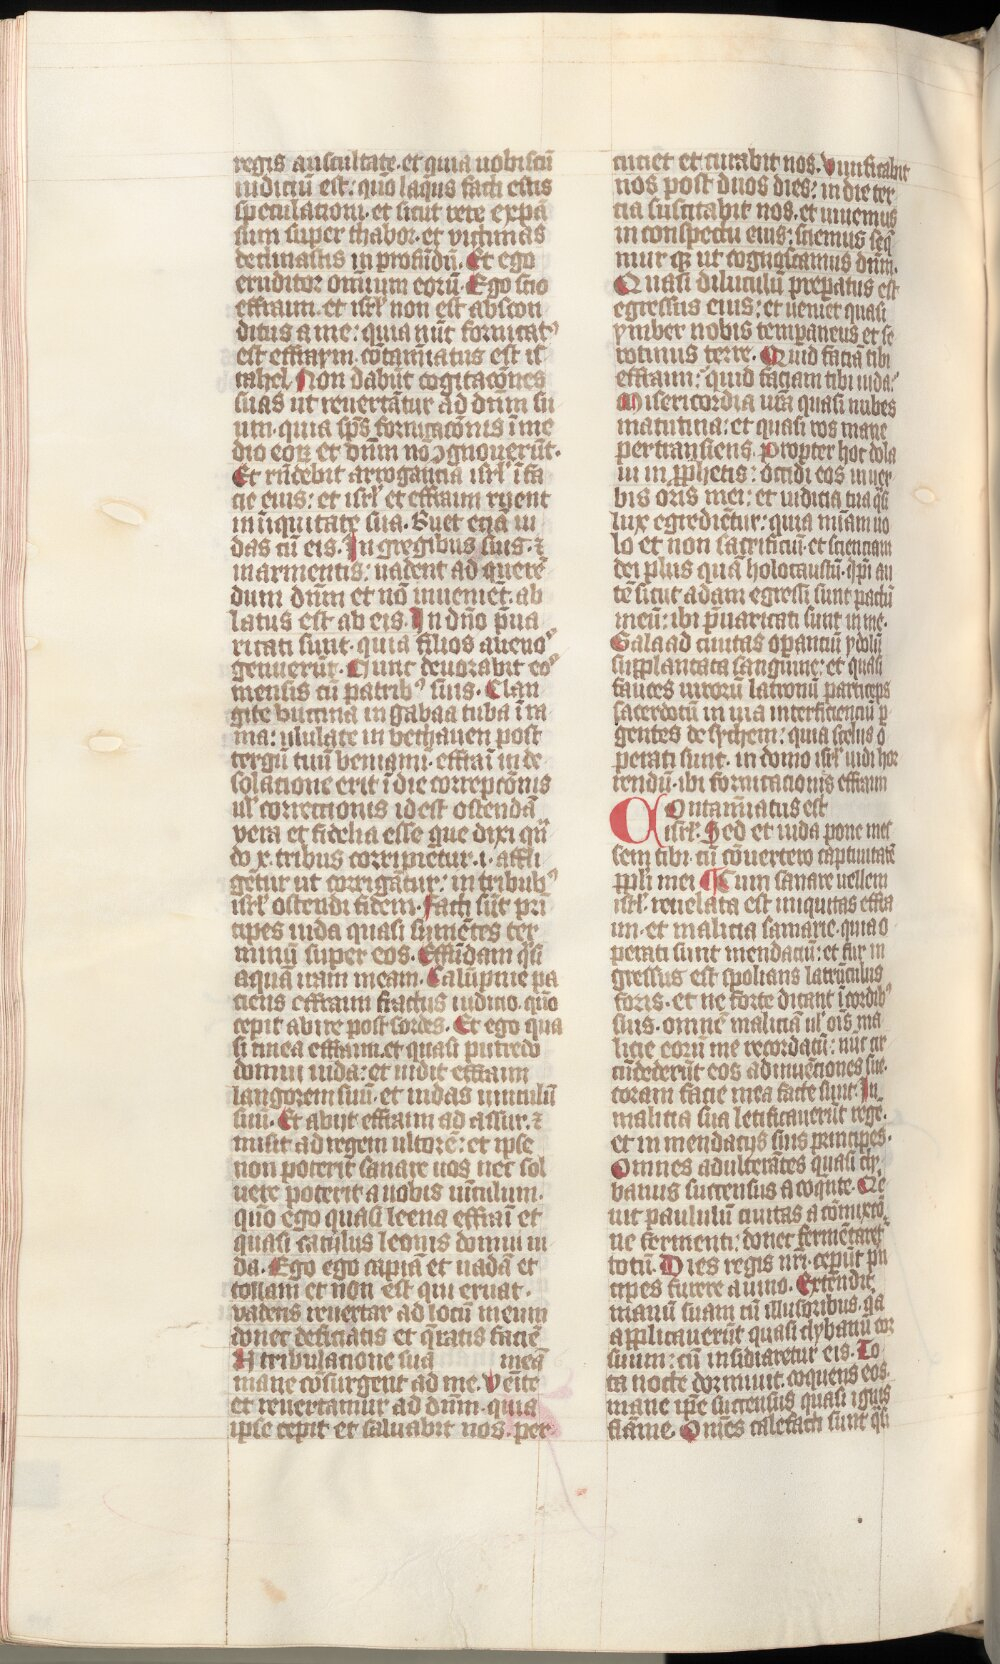 regis auscultate. et quia uobiscū
iudiciū est: quo laqus facti estis
speculationi. et sicut rete expā
sum super thabor. et victimas
declinastis in profūdū. Et ego
eruditor omium eorū. Ego scio
effraim. et isrl' non est abscon
ditus a me: quia nūc fornicat'
est effraim. cōtaminatus est is
rahel. Non dabūt cogitacōnes
suas ut reuertātur ad dnm su
um. quia sps fornicacōnis ī me
dio eoꝝ et dnm nō ꝯgnouerūt.
Et rūdebit arrogancia isrl' ī fa
cie eius: et isrl' et effraim ruent
in iniquitate sua. Ruet eciā iu
das cū eis. In gregibus suis. ⁊
in armentis: uadent ad querē
dum dnm et nō inueniēt. ab
latus est ab eis. In dno p̄ua
ricati sunt. quia filios alieno'
genuerūt. Nunc deuorabit eo'
mensis cū patrib' suis. Clan
gite buccina in gabaa tuba ī ra
ma: ululate in bethauen post
tergū tuū beniami. effraī in de
solacione erit ī die correpcōnis
ul' correctionis id est ostendā
vera et fidelia esse que dixi qn̄
do x. tribus corripietur .i. affli
gētur ut corrigātur: in tribub'
isrl' ostendi fidem. Facti sūt prī
cipes iuda quasi sumētes ter
minū super eos. Effūdam q̄si
aquā iram meam. Calūpnie pa
ciens effraim fractus iudicio. quo
cepit abire post sordes. Et ego qua
si tinea effraim. et quasi putredo
domui iuda: et uidit effraim
langorem suū. et iudas uinculū
suū. Et abiit effraim ad assur. ⁊
misit ad regem ultorē: et ipse
non poterit sanare uos nec sol
uere poterit a uobis uīculum.
quo ego quasi leena effraī et
quasi catulus leonis domui iu
da. Ego ego capiā et uadā et
tollam et non est qui eruat.
vadens reuertar ad locū meum
donec deficiatis et q̄ratis faciē
In tribulacione sua meā
mane cōsurgent ad me. Venite
et reuertamur ad dnm. quia
ipse cepit et saluabit nos. per
cuciet et curabit nos. Viuificabit
nos post duos dies: in die ter
cia suscitabit nos. et uiuemus
in conspectu eius: sciemus seq̄
mur qꝫ ut cognoscamus dnm.
Quasi diluculū preparatus est
egressus eius: et ueniet quasi
ymber nobis temporaneus et se
rotinus terre. Quid faciā tibi
effraim: quid faciam tibi iuda:
Misericordia urā quasi nubes
matutina: et quasi ros mane
pertransiens. Propter hoc dola
ui in ꝓphetis: occidi eos in uer
bis oris mei: et iudicia tua q̄si
lux egredientur: quia mīam uo
lo et non sacrificiū. et scienciam
dei plus quā holocaustū. ipī au
tē sicut adam egressi sunt pactū
meū: ibi p̄uaricati sunt in me.
Galaad ciuitas operantiū ydolū
supplantata sanguine: et quasi
fauces uirorū latronū particeps
sacerdotū in uia interficienciū p̄
gentes de sychem: quia scelus o
perati sunt. in domo isrl' uidi hor
rendū. ibi fornicacionis effraim
Contaminatus est
isrl'. Sed et iuda pone mes
sem tibi. cū cōuertero captiuitatē
ppli mei Cum sanare uellem
isrl' reuelata est iniquitas effra
im. et malicia samarie. quia o
perati sunt mendaciū: et fur in
gressus est spolians latrūculus
foris. et ne forte dicant ī cordib'
suis. omnē maliciā ul' ois ma
licie eorū me recordatū: nūc cir
cūdederūt eos adinuēciones sue.
coram facie mea facte sunt. In
malitia sua letificauerūt regē.
et in mendacijs suis principes.
Omnes adulterātes quasi cly
banus succensus a coqnte. Qe
uit paululū ciuitas a cōmixtō
ne fermenti: donec fermētaret'
totū. Dies regis nri. cepūt prī
cipes furere a uino. Extendit
manū suam cū illusoribus. qa
applicauerūt quasi clybanū cor
suum: cū insidiaretur eis. To
ta nocte dormiuit. coquens eos.
mane ipe succensus quasi ignis
flāme. Omēs calefacti sunt q̄si